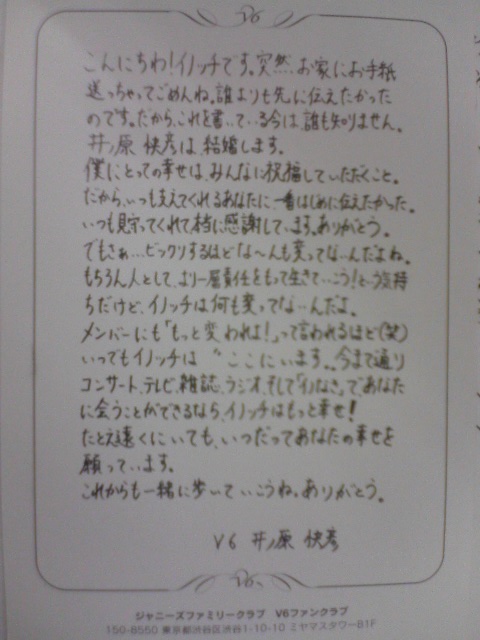 V6
こんにちわ!イノッチです。突然お家にお手紙
送っちゃってごめんね。誰よりも先に伝えたかった
のです。だから、これを書いている今は、誰も知りません。
井ノ原 快彦は、結婚します。
僕にとっての幸せは、みんなに祝福していただくこと。
だから、いつも支えてくれるあなたに、一番はじめに伝えたかった。
いつも見守ってくれて本当に感謝しています。ありがとう。
でもさぁ…ビックリするほどな〜んも変ってないんだよね。
もちろん人として、より一層責任をもって生きていこう!という気持
ちだけど、イノッチは何も変ってないんだよ。
メンバーにも「もっと変われよ!」って言われるほど(笑)
いつでもイノッチは ここにいます。今まで通り
コンサート、テレビ、雑誌、ラジオ、そして「イノなき」で、あなた
に会うことができるなら、イノッチはもっと幸せ!
たとえ遠くにいても、いつだってあなたの幸せを
願っています。
これからも一緒に歩いていこうね。ありがとう。
V6 井ノ原 快彦
V6
ジャニーズファミリークラブ V6ファンクラブ
150-8550 東京都渋谷区渋谷1-10-10 ミヤマスタワーB1F